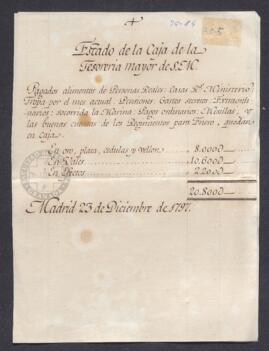 75-84
305
Estado de la Caja de la
Tesoreria mayor de S.M.
Pagados alimentos de Personas Reales: Casa Rl. Ministerio
Tropa por el mes actual: Pensiones: Gastos secretos: Extraordi-
narios: socorrida la Marina: Pagos ordinarios: Mesillas, y
las buenas cuentas de los Regimientos para Enero, quedan
en Caja.
En oro, plata, cedulas y vellon. 8.000
En Vales 10.600
En Efectos 2.200
20.800
Madrid 23 de Diciembre de 1797.